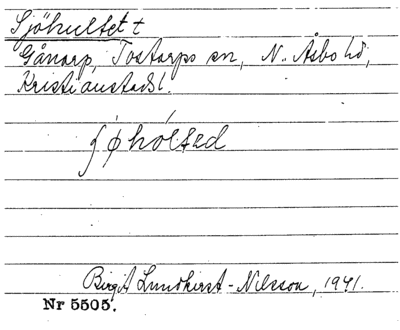 Sjöhultet t
Gånarp, Tostarps sn, N. Åsbo hd,
Kristianstads l.
ʃøhóltəd
Birgit Lundkvist-Nilsson, 1941.
Nr 5505.